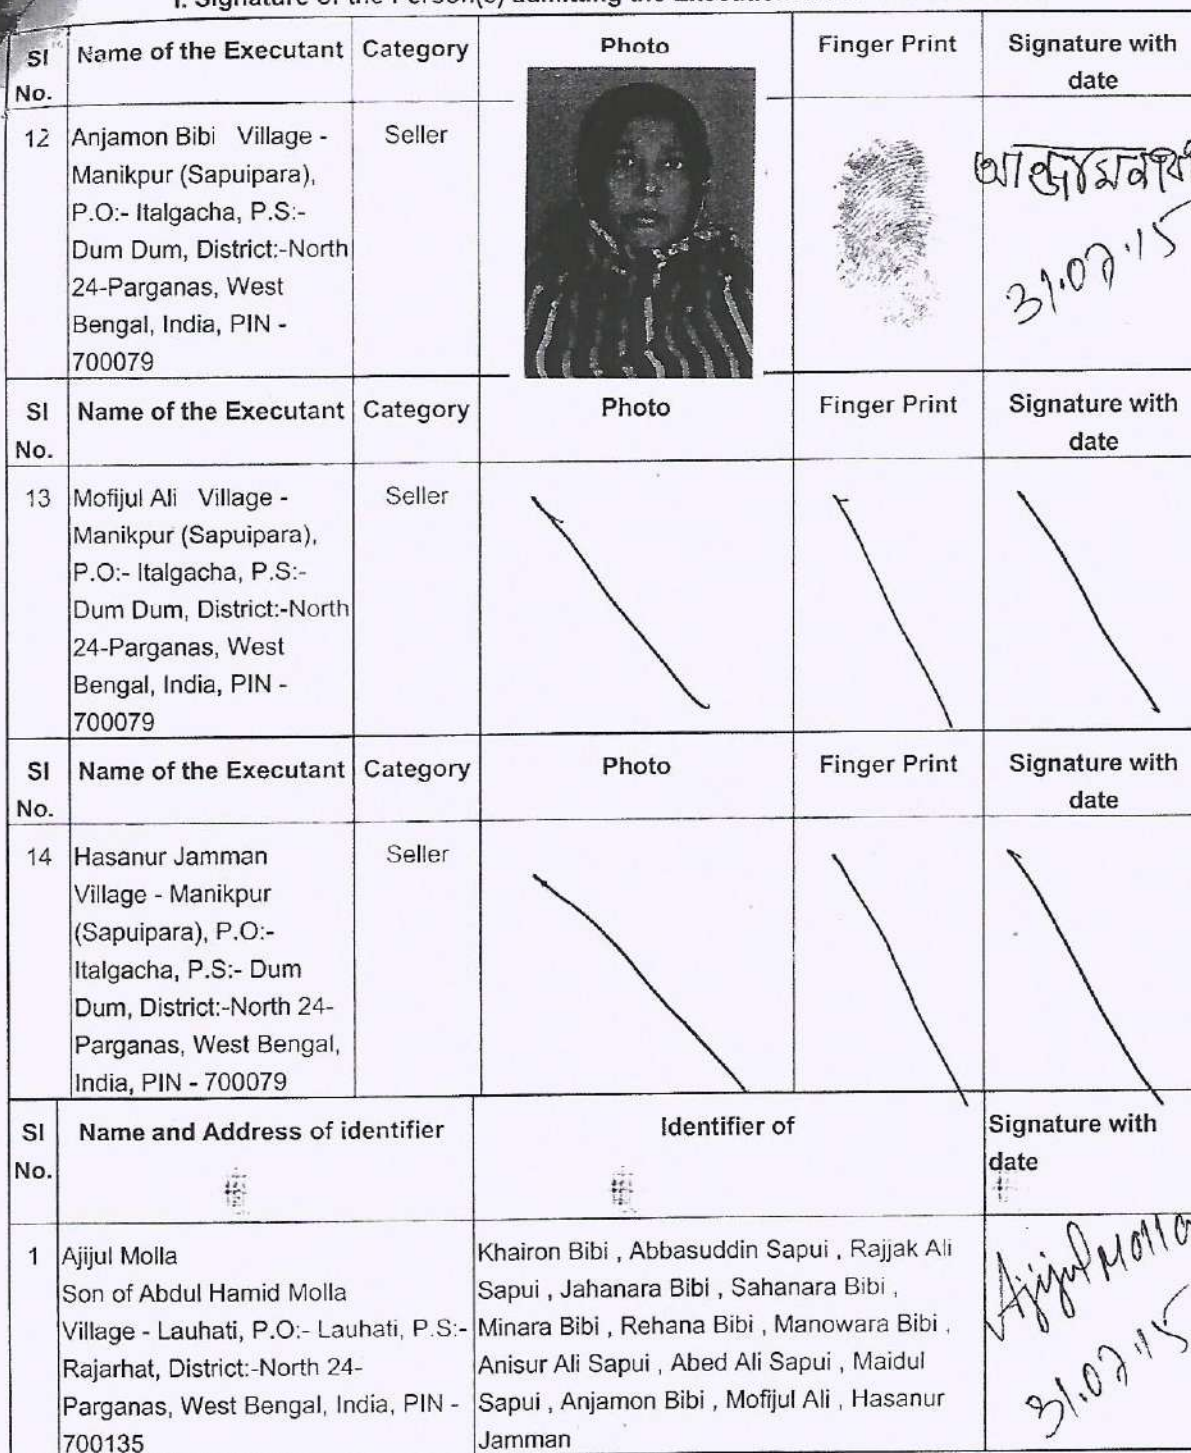 I. Signature of the Person(s) admitting the Execution
Sl No. Name of the Executant Category Photo Finger Print Signature with date
12 Anjamon Bibi Village - Seller
Manikpur (Sapuipara),
P.O:- Italgacha, P.S:-
Dum Dum, District:-North
24-Parganas, West
Bengal, India, PIN -
700079
আজ্ঞামনবিবি
31.07.15
Sl No. Name of the Executant Category Photo Finger Print Signature with date
13 Mofijul Ali Village - Seller
Manikpur (Sapuipara),
P.O:- Italgacha, P.S:-
Dum Dum, District:-North
24-Parganas, West
Bengal, India, PIN -
700079
Sl No. Name of the Executant Category Photo Finger Print Signature with date
14 Hasanur Jamman Seller
Village - Manikpur
(Sapuipara), P.O:-
Italgacha, P.S:- Dum
Dum, District:-North 24-
Parganas, West Bengal,
India, PIN - 700079
Sl No. Name and Address of identifier Identifier of Signature with date
1 Ajijul Molla
Son of Abdul Hamid Molla
Village - Lauhati, P.O:- Lauhati, P.S:-
Rajarhat, District:-North 24-
Parganas, West Bengal, India, PIN -
700135
Khairon Bibi , Abbasuddin Sapui , Rajjak Ali
Sapui , Jahanara Bibi , Sahanara Bibi ,
Minara Bibi , Rehana Bibi , Manowara Bibi ,
Anisur Ali Sapui , Abed Ali Sapui , Maidul
Sapui , Anjamon Bibi , Mofijul Ali , Hasanur
Jamman
Ajijul Molla
31.07.15